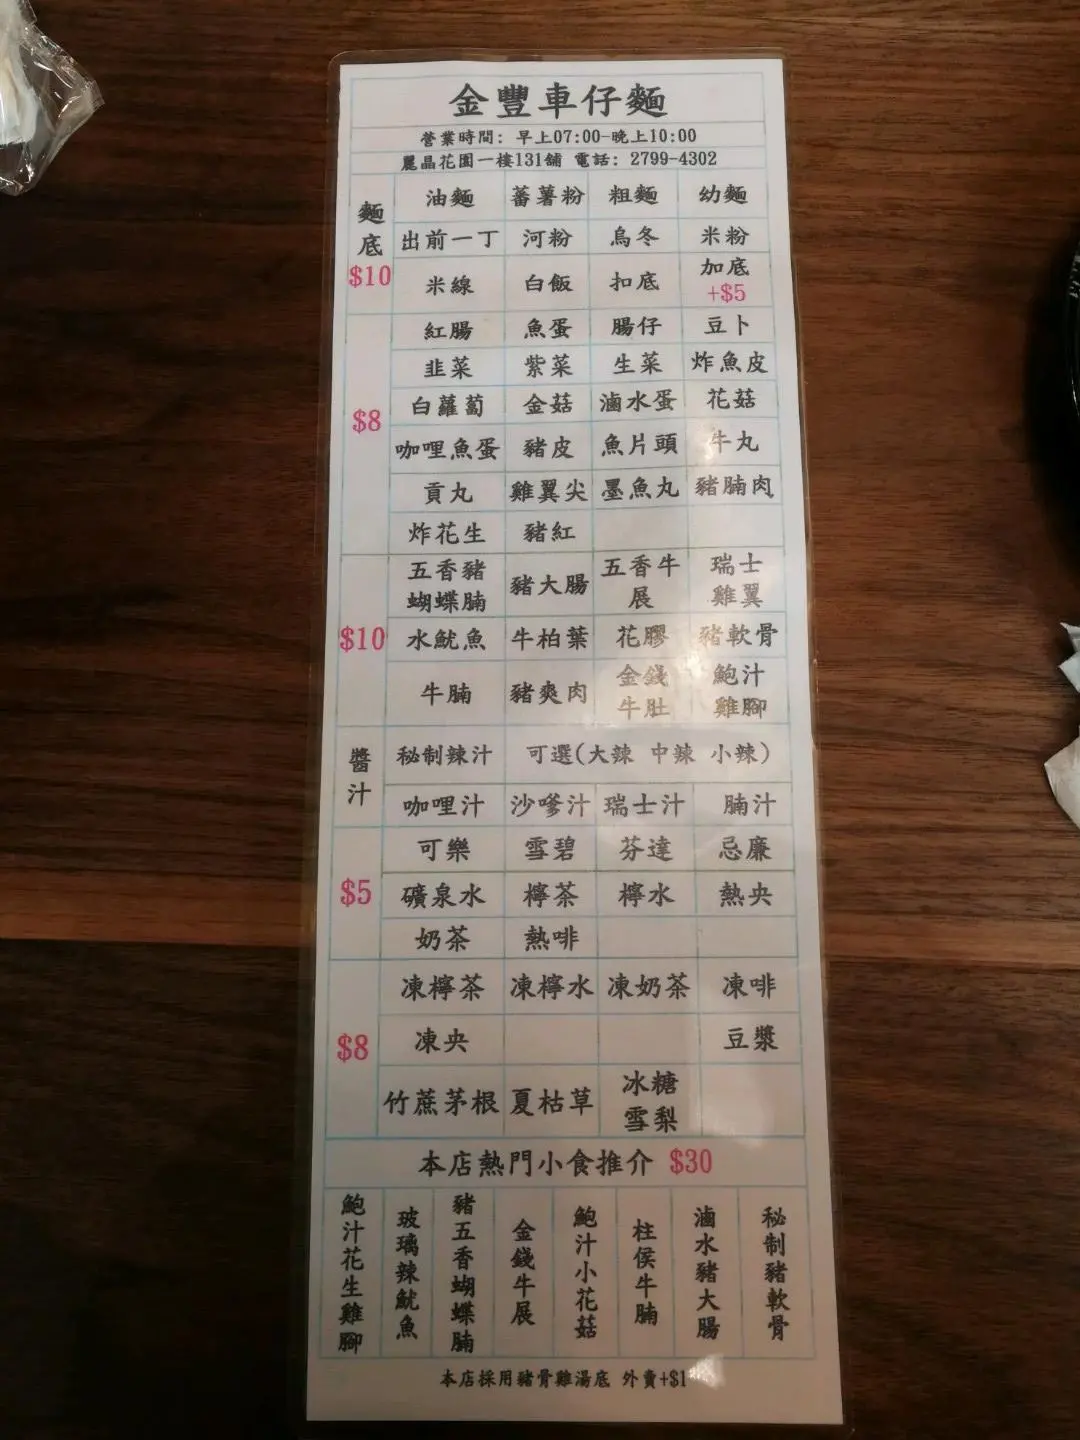 金豐車仔麵
營業時間: 早上07:00-晚上10:00
麗晶花園一樓131舖 電話: 2799-4302
麵底 $10
油麵 蕃薯粉 粗麵 幼麵
出前一丁 河粉 烏冬 米粉
米線 白飯 扣底 加底 +$5
$8
紅腸 魚蛋 腸仔 豆卜
韭菜 紫菜 生菜 炸魚皮
白蘿蔔 金菇 滷水蛋 花菇
咖哩魚蛋 豬皮 魚片頭 牛丸
貢丸 雞翼尖 墨魚丸 豬腩肉
炸花生 豬紅
$10
五香豬蝴蝶腩 豬大腸 五香牛展 瑞士雞翼
水魷魚 牛柏葉 花膠 豬軟骨
牛腩 豬爽肉 金錢牛肚 鮑汁雞腳
醬汁
秘制辣汁 可選(大辣 中辣 小辣)
咖哩汁 沙嗲汁 瑞士汁 腩汁
$5
可樂 雪碧 芬達 忌廉
礦泉水 檸茶 檸水 熱央
奶茶 熱啡
$8
凍檸茶 凍檸水 凍奶茶 凍啡
凍央 豆漿
竹蔗茅根 夏枯草 冰糖雪梨
本店熱門小食推介 $30
鮑汁花生雞腳
玻璃辣魷魚
豬五香蝴蝶腩
金錢牛展
鮑汁小花菇
柱侯牛腩
滷水豬大腸
秘制豬軟骨
本店採用豬骨雞湯底 外賣+$1